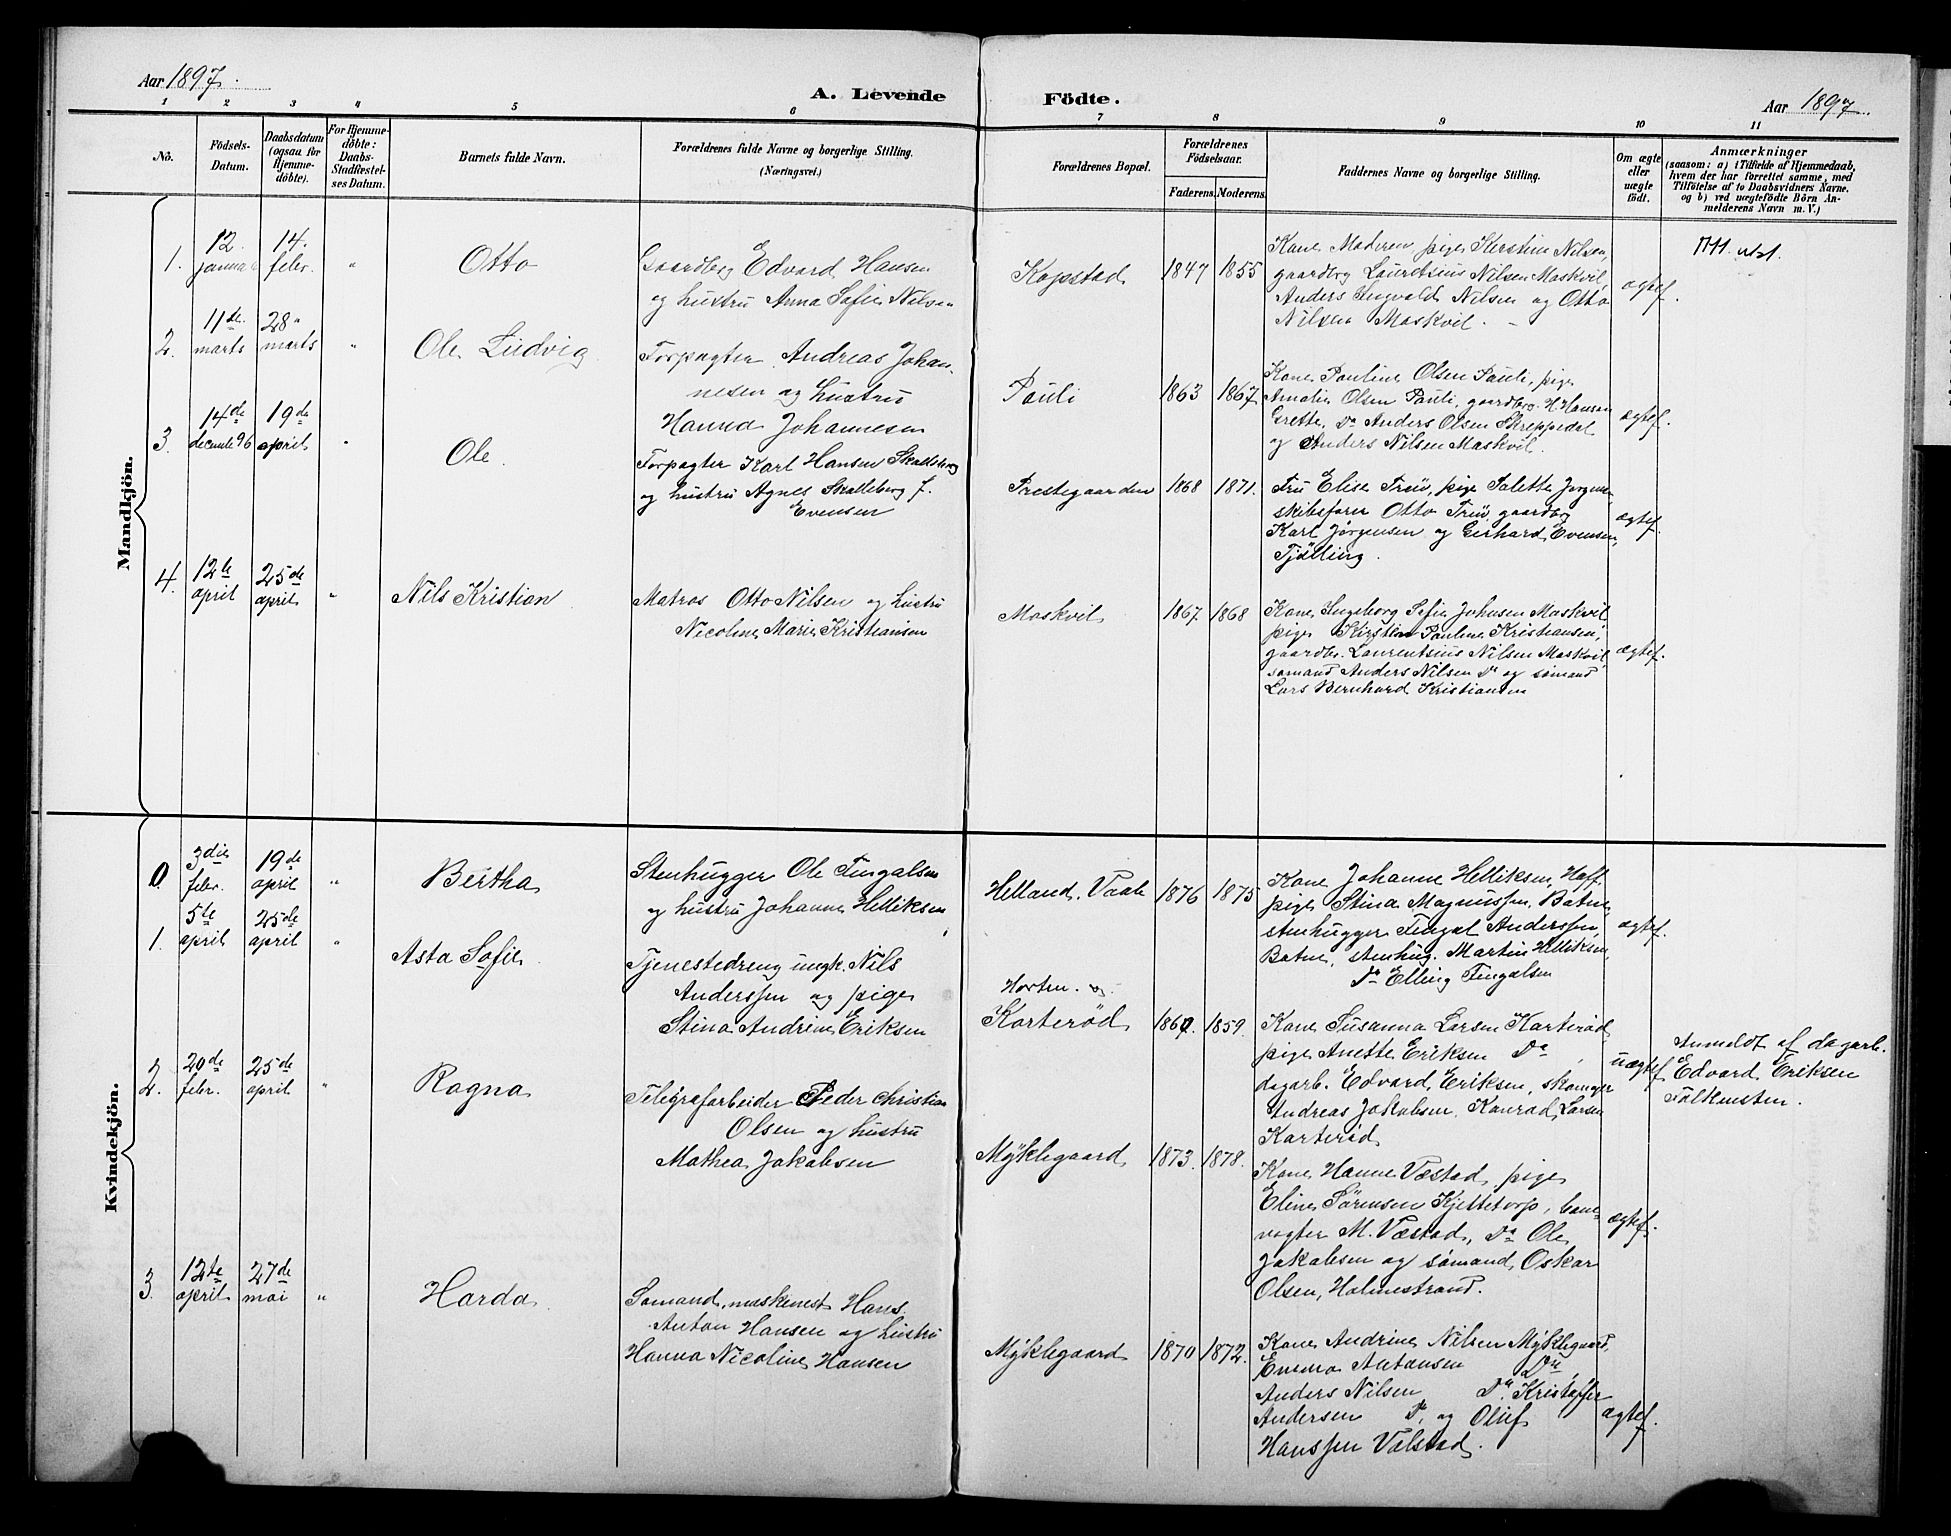 Aar 1897.
A. Levende Födte.
Aar 1897.
1 2 3 4 5 6 7 8 9 10 11
No.
Födsels-
Datum.
Daabsdatum
(ogsaa for
Hjemme-
döbte).
For Hjemme-
döbte:
Daabs-
Stadfæstel-
ses Datum.
Barnets fulde Navn.
Forældrenes fulde Navne og borgerlige Stilling.
(Næringsvei.)
Forældrenes Bopæl.
Forældrenes
Födselsaar.
Faderens. Moderens.
Faddernes Navne og borgerlige Stilling.
Om ægte
eller
uægte
födt.
Anmærkninger
(saasom: a) i Tilfælde af Hjemmedaab,
hvem der har forrettet samme, med
Tilföielse af to Daabsvidners Navne.
og b) ved uægtefödte Börn An-
melderens Navn m. V.)
Mandkjön.
1.
12.
januar
14.
febr.
"
Otto
Gaardbr. Edvard Hansen
og hustru Anna Sofie Nilsen
Kopstad
1847 1855
Kone Moderen, pige Kerstine Nilsen,
gaardbrg Lauretsius Nilsen Maskvil,
Anders Ingvald Nilsen og Otto
Nilsen Maskvil.
ægtef.
2.
11te
marts
28
marts
"
Ole Ludvig
Forpagter Andreas Johan-
nesen og hustru
Hanna Johannesen
Pauli
1863 1867
Kone Pauline Olsen Pauli, pige
Amalie Olsen Pauli, gaardbrg. H. Hansen
Grette, Do Anders Olsen Skreppedal
og Anders Nilsen Maskvil.
ægtef.
3.
14de
decembr 96
19de
april
"
Ole
Forpagter Karl Hansen Skalleberg
og hustru Agnes Skalleberg f.
Evensen
Prestegaarden
1868 1871.
Fru Elise Treu, pige Salette Jorgens-
skibsfører Otto Treu, gaardbrg
Karl Jørgensen og Gerhard Evensen,
Tjølling.
ægtef.
4.
12te
april
25de
april
"
Nils Kristian
Matros Otto Nilsen og hustru
Nicoline Marie Kristiansen
Maskvil
1867 1868
Kone Ingeborg Sofie Johnsen Maskvil
pige Kirstine Pauline Kristiansen,
gaardbr. Laurentsius Nilsen Maskvil,
sømand Anders Nilsen Do og sømand
Lars Bernhard Kristiansen
ægtef.
Kvindekjön.
0
3die
febr.
19de
april
"
Bertha
Stenhugger Ole Fingalsen
og hustru Johanne Helliksen
Helland, Vaale
1876 1875
Kone Johanne Helliksen, Haff
pige Stina Magnussen, Batne,
stenhugger Fingal Anderssen,
Batne, stenhug. Martin Helliksen,
Do Elling Fingalsen
ægtef.
1.
5te
april
25de
april
"
Asta Sofie
Tjenestedreng ungk. Nils
Anderssen og pige
Stina Andrine Eriksen
Horten. og
Karterød
1859.
Kone Susanna Larsen Karterød
pige Anette Eriksen Do,
dagarb. Edvard Eriksen, skomager
Andreas Jakobsen, Konrad Larsen
Karterød
uægtef.
Anmeldt af dagarb.
Edvard Eriksen
Falkensten.
2.
20de
febr.
25de
april
"
Ragna
Telegrafarbeider Peder Christian
Olsen og hustru
Mathea Jakobsen
Myklegaard
1873. 1878.
Kone Hanne Væstad, pige
Eline Sørensen Kjettetorp, bane-
vogter M. Væstad, Do Ole
Jakobsen og sømand Oskar
Olsen, Holmestrand.
ægtef.
3.
12te
april
27de
mai
"
Harda
Sømand, maskenest Hans
Anton Hansen og hustru
Hanna Nicoline Hansen
Myklegaard
1870 1872.
Kone Andrine Nilsen Myklegaard,
Emma Antonsen Do,
Anders Nilsen Do, Kristoffer
Andersen Do, og Oluf
Hanssen Valstad.
ægtef.